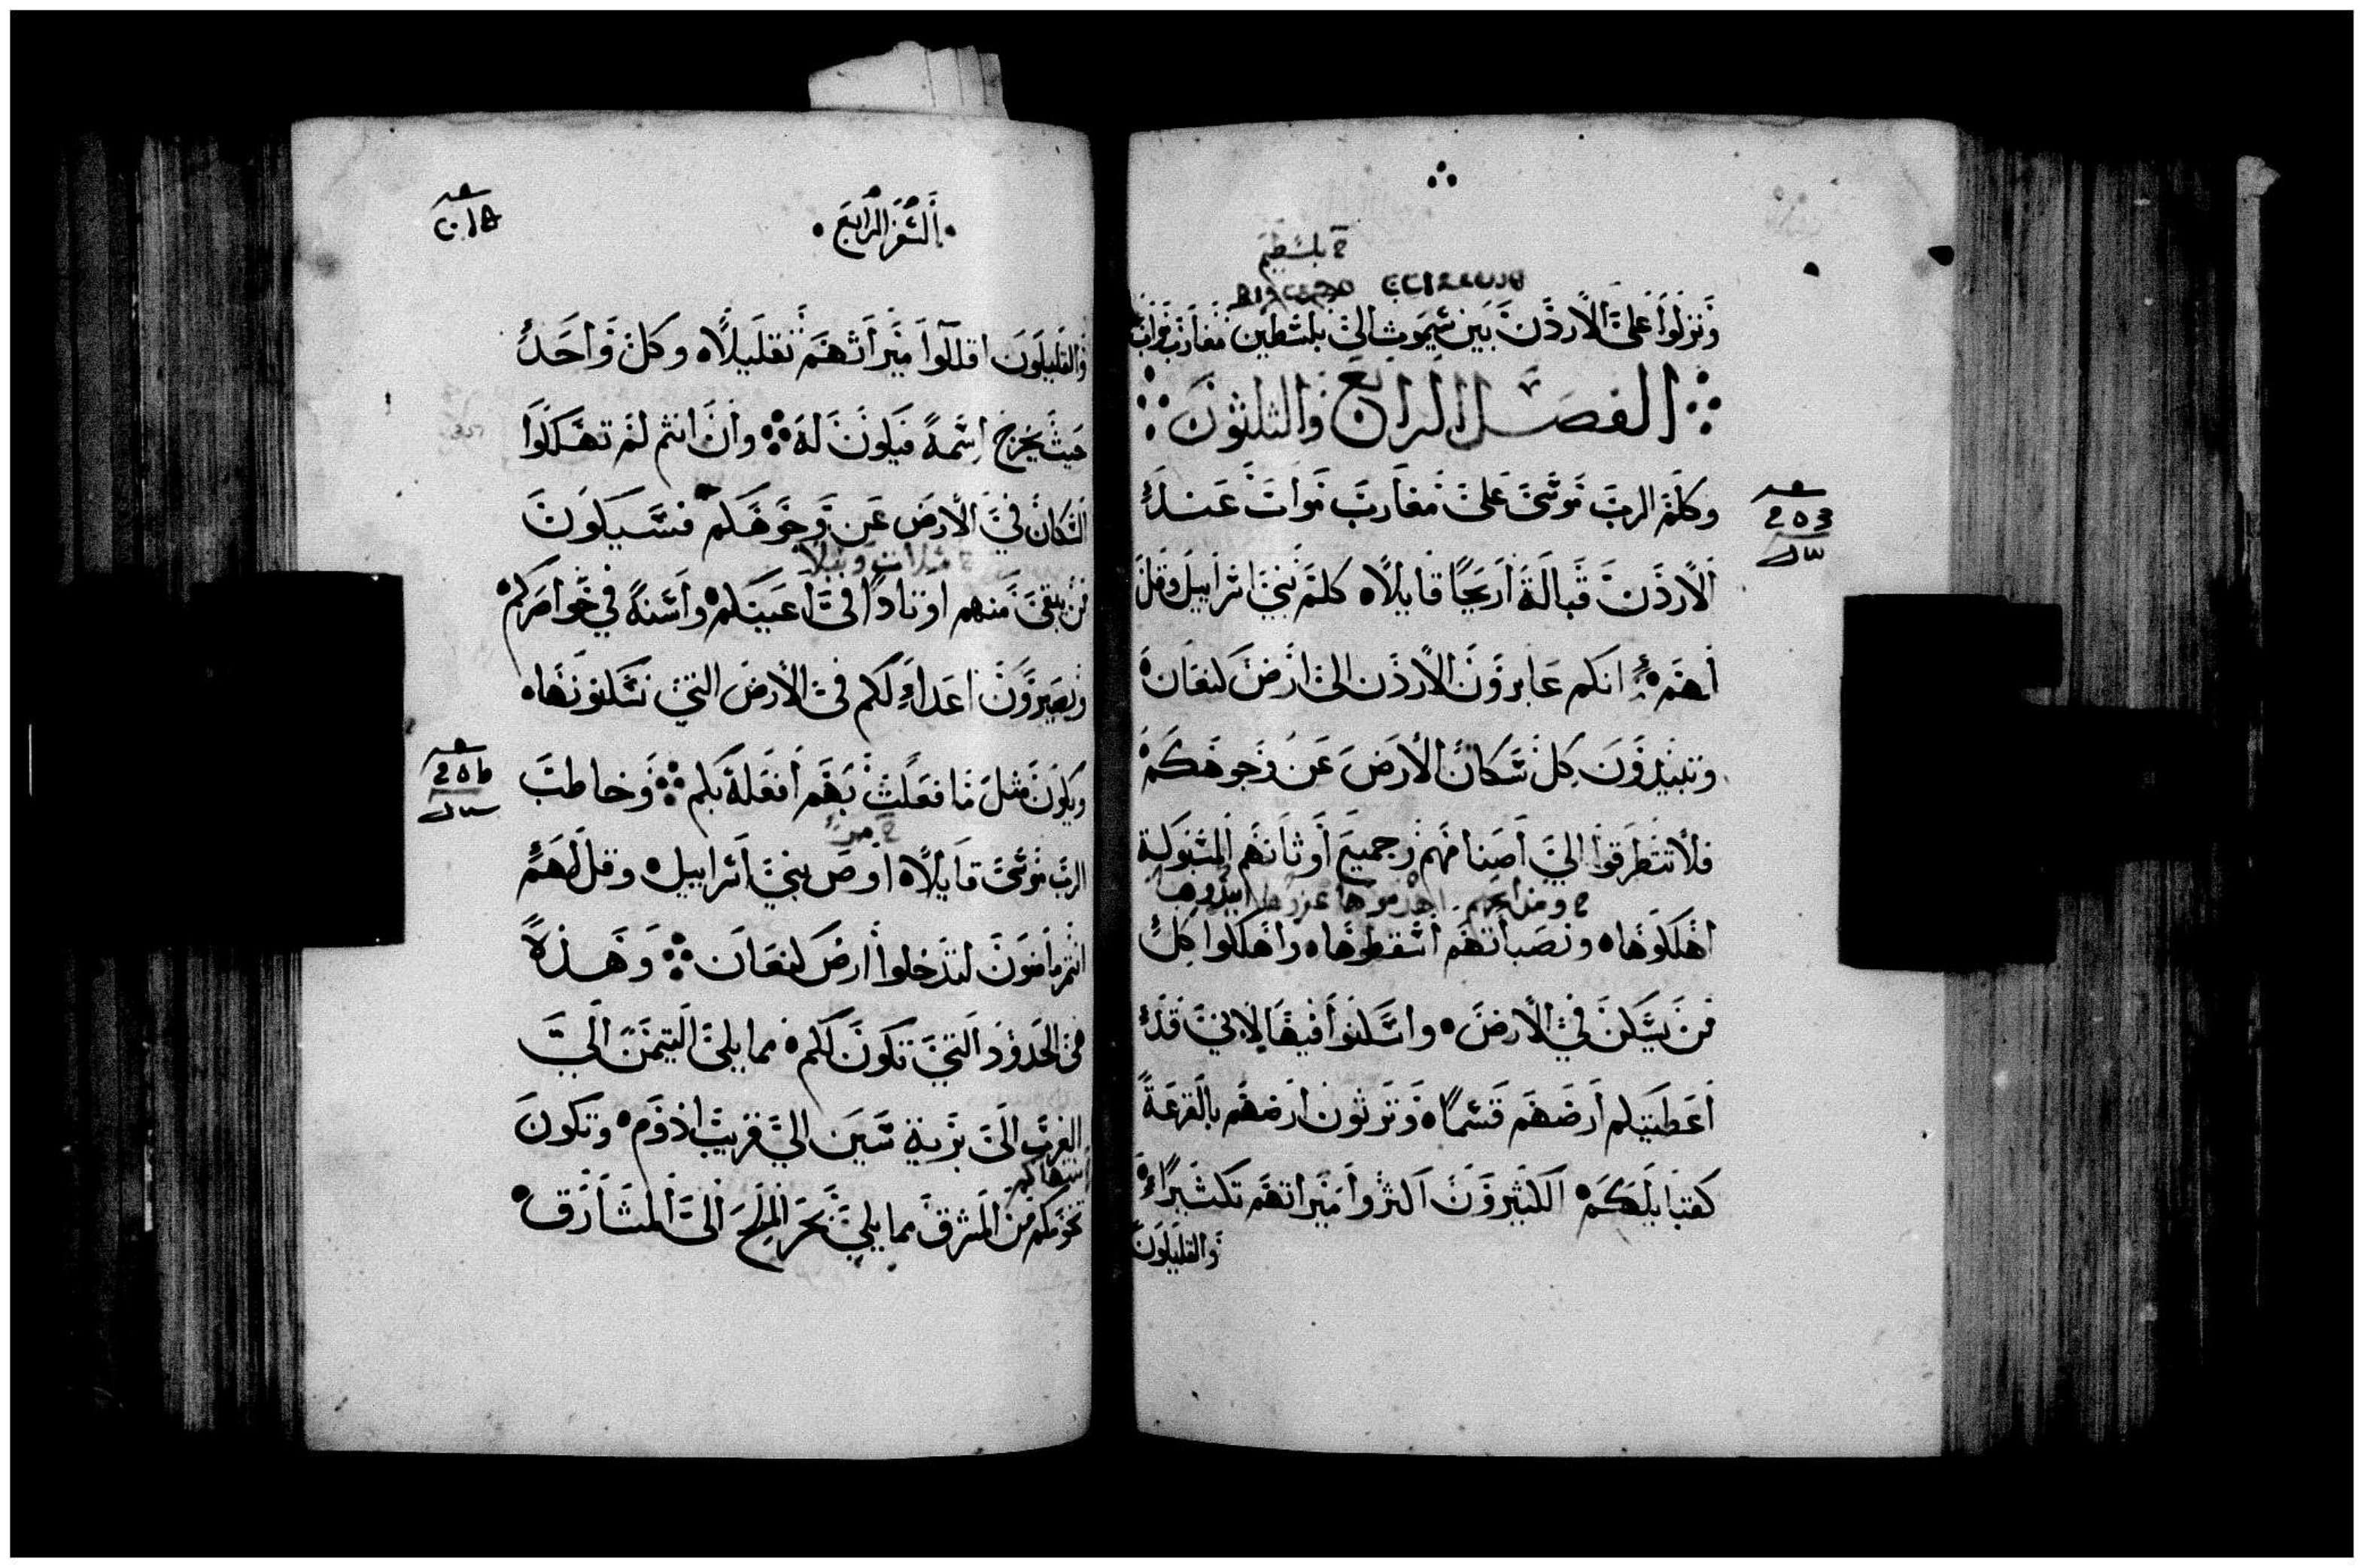 ح بلسطيم
ونزلوا على الاردن بين سيموت الى بلسطين مغارب مواب
الفصل الرابع والثلثون
وكلم الرب موسى على مغارب موات عند
الاردن قبالة اريحا قايلا كلم بني اسراييل وقل
لهم انكم عابرون الاردن الى ارض كنعان
وتبيدون كل سكان الارض عن وجوهكم
فلا تتطرقوا الى اصنامهم وجميع اوثانهم المسبوكة
اهلكوها ونصباتهم اسقطوها واهلكوا كل
من يسكن في الارض واسكنوا فيها لاني قد
اعطيتكم ارضهم قسما وترثون ارضهم بالقرعة
كقبايلكم الكثيرون اكثروا ميراثهم تكثيرا
والقليلون
السفر الرابع
والقليلون اقللوا ميراثهم تقليلا وكل واحد
حيث يخرج اسمه فيكون له وان انتم لم تهلكوا
السكان في الارض عن وجوهكم فسيكون
من يبقى منهم اوتادا في اعينكم واسنة في خواصركم
ويصيرون اعداء لكم في الارض التي تسكنونها
ويكون مثل ما فعلت بهم افعله بكم وخاطب
ح مر
الرب موسى قايلا اوص بني اسراييل وقل لهم
انتم ماضون لتدخلوا ارض كنعان وهذه
هي الحدود التي تكون لكم مما يلي التيمن الى
الغرب الى برية سين الى قريب ادوم وتكون
منتهاكم
تخومكم من المشرق مما يلي بحر الملح الى المشارق